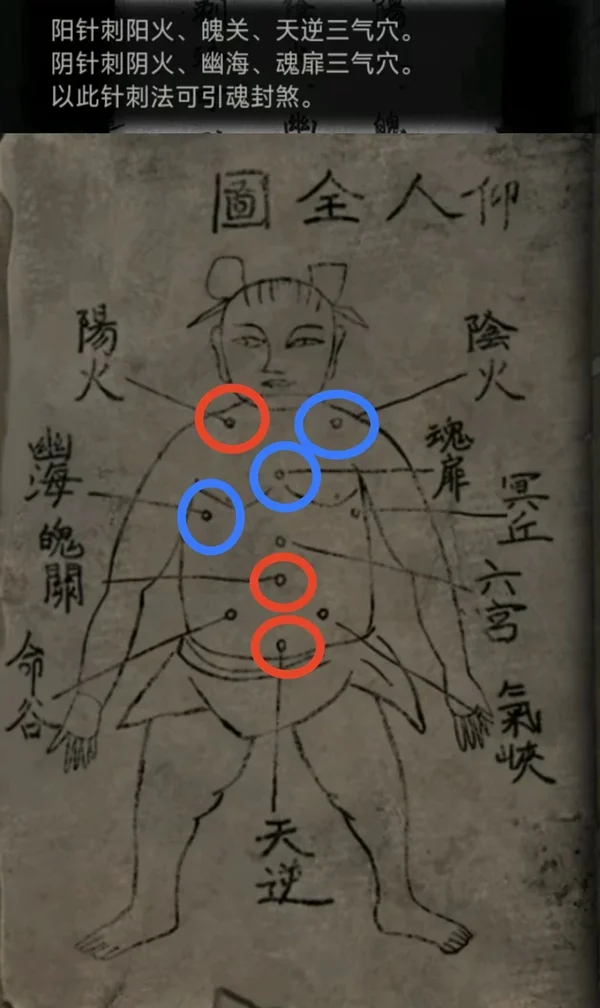 阳针刺阳火、魄关、天逆三气穴。
阴针刺阴火、幽海、魂扉三气穴。
以此针刺法可引魂封煞。
仰人全圖
陽火
陰火
幽海
魂扉
冥丘
魄關
六宮
命谷
氣峽
天逆